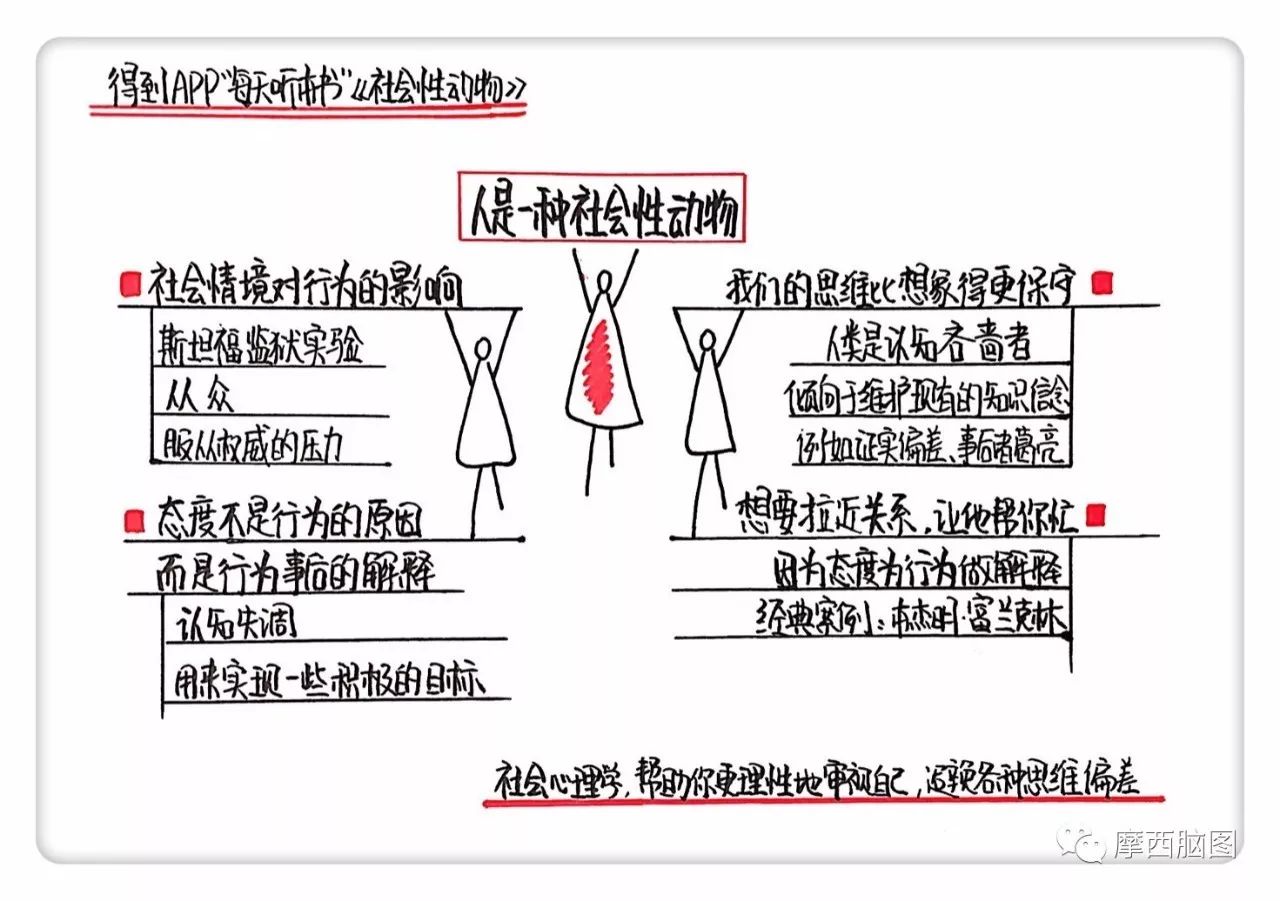 得到APP“每天听本书”《社会性动物》
人是一种社会性动物
社会情境对行为的影响
斯坦福监狱实验
从众
服从权威的压力
态度不是行为的原因
而是行为事后的解释
认知失调
用来实现一些积极的目标
我们的思维比想象得更保守
人类是认知吝啬者
倾向于维护现有的知识信念
例如证实偏差、事后诸葛亮
想要拉近关系,让他帮你忙
因为态度为行为做解释
经典案例:本杰明·富兰克林
社会心理学,帮助你更理性地审视自己,避免各种思维偏差
摩西脑图